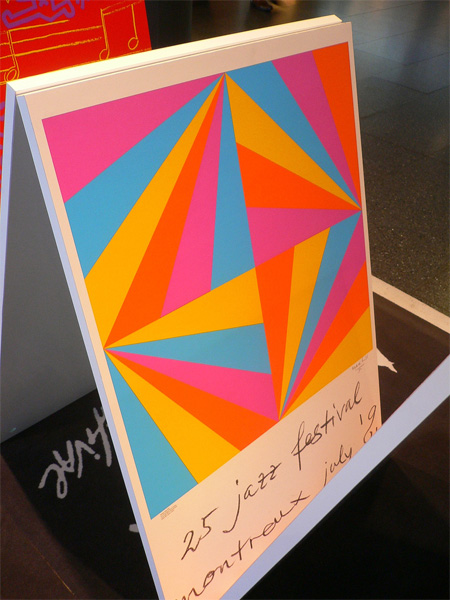 25 jazz festival
montreux july '9